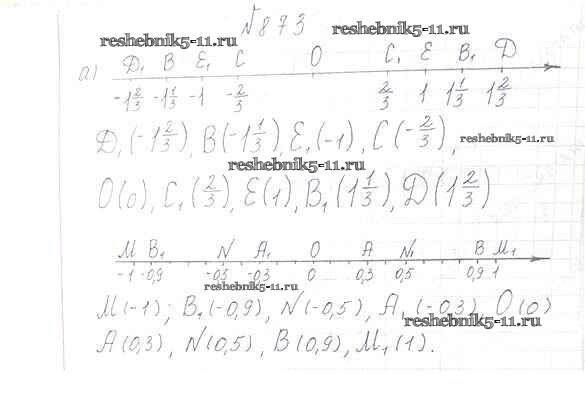 №873
reshebnik5-11.ru
reshebnik5-11.ru
а) Д₁ В Е₁ С О С₁ Е В₁ Д
-1 2/3 -1 1/3 -1 -2/3 2/3 1 1 1/3 1 2/3
Д₁(-1 2/3), В(-1 1/3), Е₁(-1), С(-2/3),
reshebnik5-11.ru
reshebnik5-11.ru
О(0), С₁(2/3), Е(1), В₁(1 1/3), Д(1 2/3)
М В₁ N А₁ О А N₁ В М₁
-1 -0,9 -0,5 -0,3 0 0,3 0,5 0,9 1
reshebnik5-11.ru
М(-1); В₁(-0,9), N(-0,5), А₁(-0,3), О(0)
reshebnik5-11.ru
А(0,3), N(0,5), В(0,9), М₁(1).